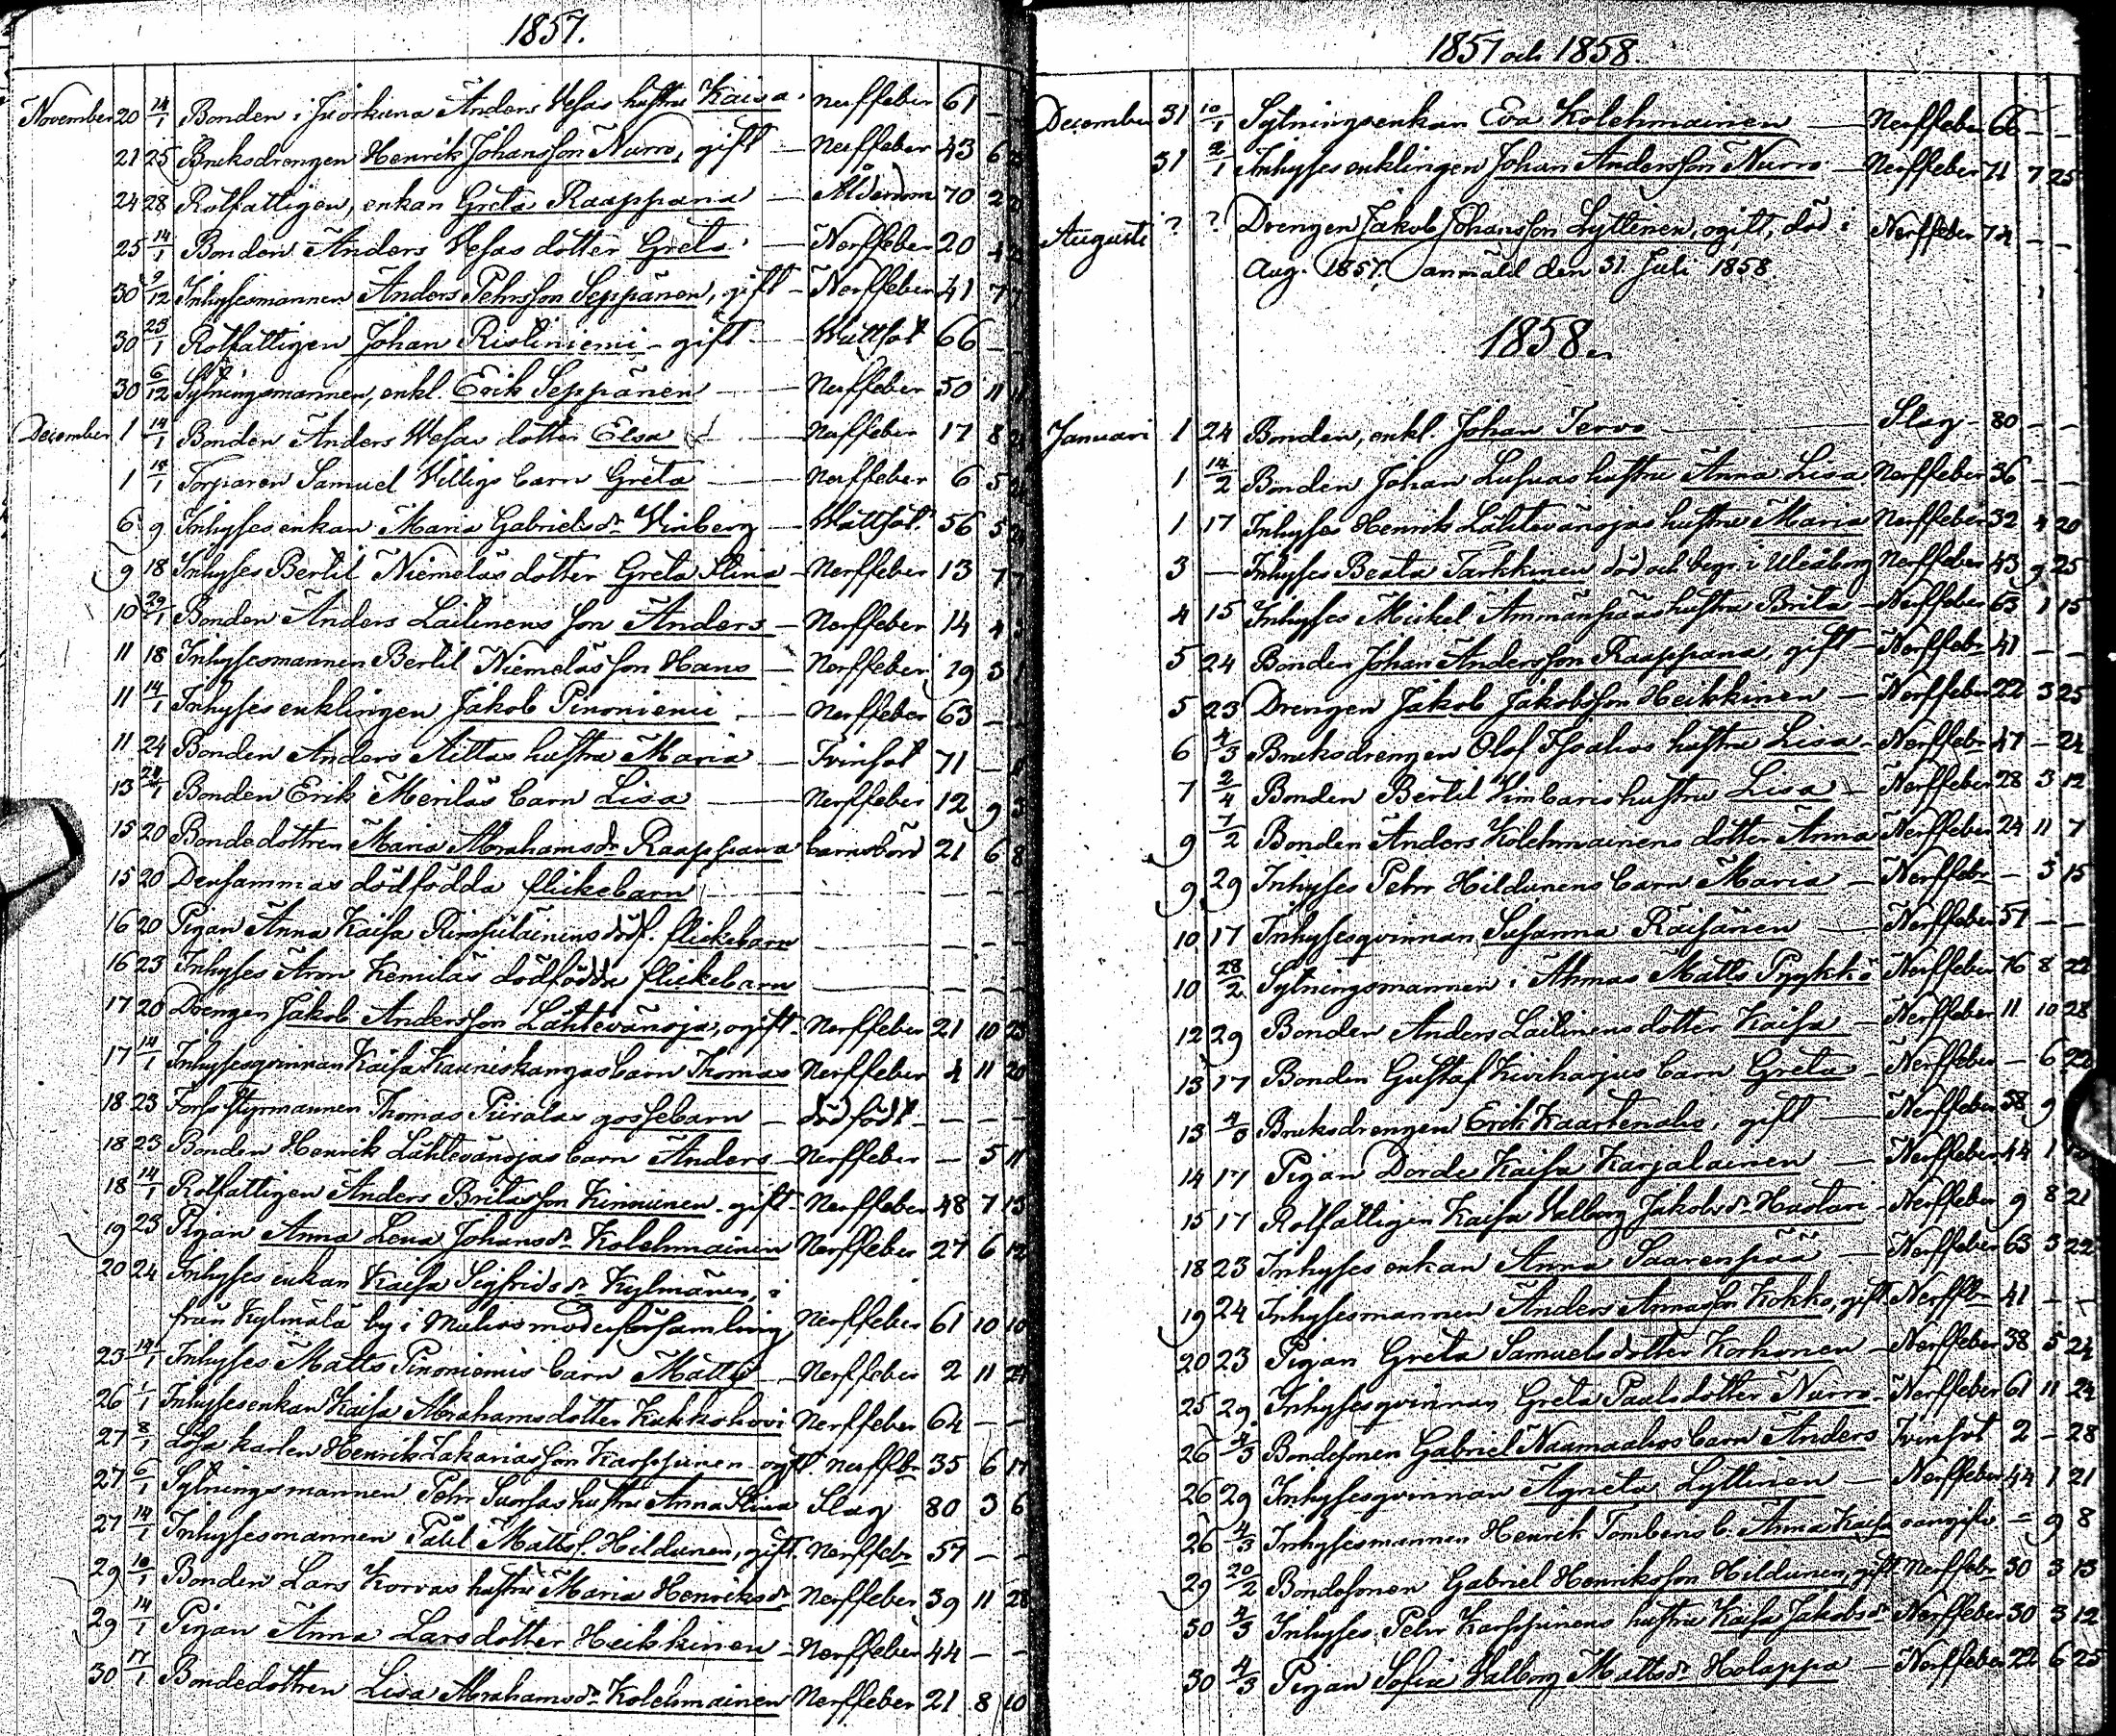 1857.
November 20 14/1 Bonden i Juorkuna Anders Vesas hustru Kaisa nerffeber 61 – –
21 25 Bruksdrengen Henrik Johansson Nurro, gift – Nerffeber 43 6
24 28 Rotfattigen, enkan Greta Raappana – Ålderdom 70 2
25 14/1 Bonden Anders Vesas dotter Greta – Nerffeber 20 4
30 9/12 Inhysesmannen Anders Pehrsson Seppänen, gift – Nerffeber 41 7 7
30 23/1 Rotfattigen Johan Ristiniemi – gift – Wattsot 66 – –
30 6/12 Sytningsmannen, enkl. Erik Seppänen – Nerffeber 50 11 11
December 1 14/1 Bonden Anders Vesas dotter Elsa – Nerffeber 17 8
1 14/1 Torparen Samuel Villigs barn Greta – Nerffeber 6 5
6 9 Inhyses enkan Maria Gabrielsdr Vinberg – Wattsot 56 5
9 18 Inhyses Bertil Niemeläs dotter Greta Stina – Nerffeber 13 7 7
10 29/1 Bonden Anders Laitinens son Anders – Nerffeber 14 4
11 18 Inhysesmannen Bertil Niemeläs son Hans – Nerffeber 19 3 1
11 14/1 Inhyses enklingen Jakob Pinoniemi – Nerffeber 63 – –
11 24 Bonden Anders Aittas hustru Maria – Tvinsot 71 –
13 24/1 Bonden Erik Meriläs barn Lisa – Nerffeber 12 9 3
15 20 Bondedottren Maria Abrahamsdr Raappana barnsbörd 21 6 8
15 20 Densammas dödfödda flickebarn – – – –
16 20 Pigan Anna Kaisa Rimpiläinens dödf. flickebarn – – – –
16 23 Inhyses Aron Kemiläs dödfödda flickebarn – – – –
17 20 Drengen Jakob Andersson Lähtevänoja, ogift – Nerffeber 21 10 23
17 14/1 Inhysesqvinnan Kaisa Kauniskangas barn Thomas Nerffeber 4 11 20
18 23 Forsstyrmannen Thomas Piiralas gossebarn – dödfödt – – –
18 23 Bonden Henrik Lähtevänojas barn Anders – Nerffeber – 5 11
18 14/1 Rotfattigen Anders Britasson Kinnunen – gift – Nerffeber 48 7 13
19 23 Pigan Anna Lena Johansdr Kolehmainen Nerffeber 27 6 12
20 24 Inhyses enkan Kaisa Sigfridsdr Kylmänen,
från Kylmälä by i Muhos moderförsamling Nerffeber 61 10 10
23 14/1 Inhyses Matts Pinoniemis barn Matts – Nerffeber 2 11 24
26 1/1 Inhysesenkan Kaisa Abrahamsdotter Kukkohovi Nerffeber 64 – –
27 8/1 Lösa karlen Henrik Zakariasson Karppinen ogift. nerffbr 35 6 17
27 6/1 Sytningsmannen Pehr Suorsas hustru Anna Stina Slag 80 3 6
27 14/1 Inhysesmannen Paul Mattss. Hildunen, gift. Nerffebr 57 – –
29 10/1 Bonden Lars Korvas hustru Maria Henriksdr Nerffeber 39 11 28
29 14/1 Pigan Anna Larsdotter Heikkinen – Nerffeber 44 – –
30 17/1 Bondedottren Lisa Abrahamsdr Kolehmainen Nerffeber 21 8 10
1857 och 1858.
December 31 10/1 Sytningsenkan Eva Kolehmainen – Nerffeber 66 – –
31 2/1 Inhyses enklingen Johan Andersson Nurro – Nerffeber 71 7 25
Augusti ? ? Drengen Jakob Johansson Lyttinen, ogift, död i Nerffeber 74 – –
Aug. 1857, anmäld den 31 Juli 1858
1858.
Januari 1 24 Bonden, enkl. Johan Tervo – Slag – 80 – –
1 14/2 Bonden Johan Lupuas hustru Anna Lisa Nerffeber 36 – –
1 17 Inhyses Henrik Lähtevänojas hustru Maria Nerffeber 32 4 20
3 – Inhyses Beata Tarkkinen död och begr. i Uleåborg Nerffeber 43 9 25
4 15 Inhyses Mickel Ämmänpääs hustru Brita – Nerffeber 63 1 15
5 24 Bonden Johan Andersson Raappana, gift – Nerffebr 41 – –
5 23 Drengen Jakob Jakobsson Heikkinen – Nerffeber 22 3 25
6 4/3 Bruksdrengen Olof Isoahos hustru Lisa – Nerffebr 47 – 24
7 2/4 Bonden Bertil Vimbaris hustru Lisa – Nerffeber 28 3 12
9 7/2 Bonden Anders Kolehmainens dotter Anna Nerffeber 24 11 7
9 29 Inhyses Pehr Hildunens barn Maria – Nerffebr – 3 15
10 17 Inhysesqvinnan Susanna Räisänen – Nerffeber 57 – –
10 28/2 Sytningsmannen i Ahmas Matts Pyykkö Nerffeber 76 8 22
12 29 Bonden Anders Laitinens dotter Kaisa – Nerffeber 11 10 28
13 17 Bonden Gustaf Kiviharjus barn Greta – Nerffeber – 6 22
13 4/3 Bruksdrengen Erik Kaartenaho, gift – Nerffeber 58 9
14 17 Pigan Dorde Kaisa Karjalainen – Nerffeber 44 1
15 17 Rotfattigen Kaisa Valborg Jakobsdr Hastari – Nerffeber 9 8 21
18 23 Inhyses enkan Anna Saarenpää – Nerffeber 63 3 22
19 24 Inhysesmannen Anders Annasson Kokko, gift Nerffbr 41 – –
20 23 Pigan Greta Samuelsdotter Korhonen – Nerffeber 38 5 24
25 29 Inhysesqvinnan Greta Paulsdotter Nurro – Nerffeber 61 11 24
26 4/3 Bondesonen Gabriel Naamaahos barn Anders Tvinsot 2 – 28
26 29 Inhysesqvinnan Agneta Lyttinen – Nerffeber 44 1 21
26 4/3 Inhysesmannen Henrik Tomberis b. Anna Kaisa oangifv. – 9 8
29 20/2 Bondesonen Gabriel Henriksson Hildunen, gift Nerffebr 30 3 13
30 4/3 Inhyses Pehr Karppinens hustru Kaisa Jakobsdr Nerffeber 30 3 12
30 4/3 Pigan Sofia Valborg Mattsdr Holappa – Nerffeber 22 6 25